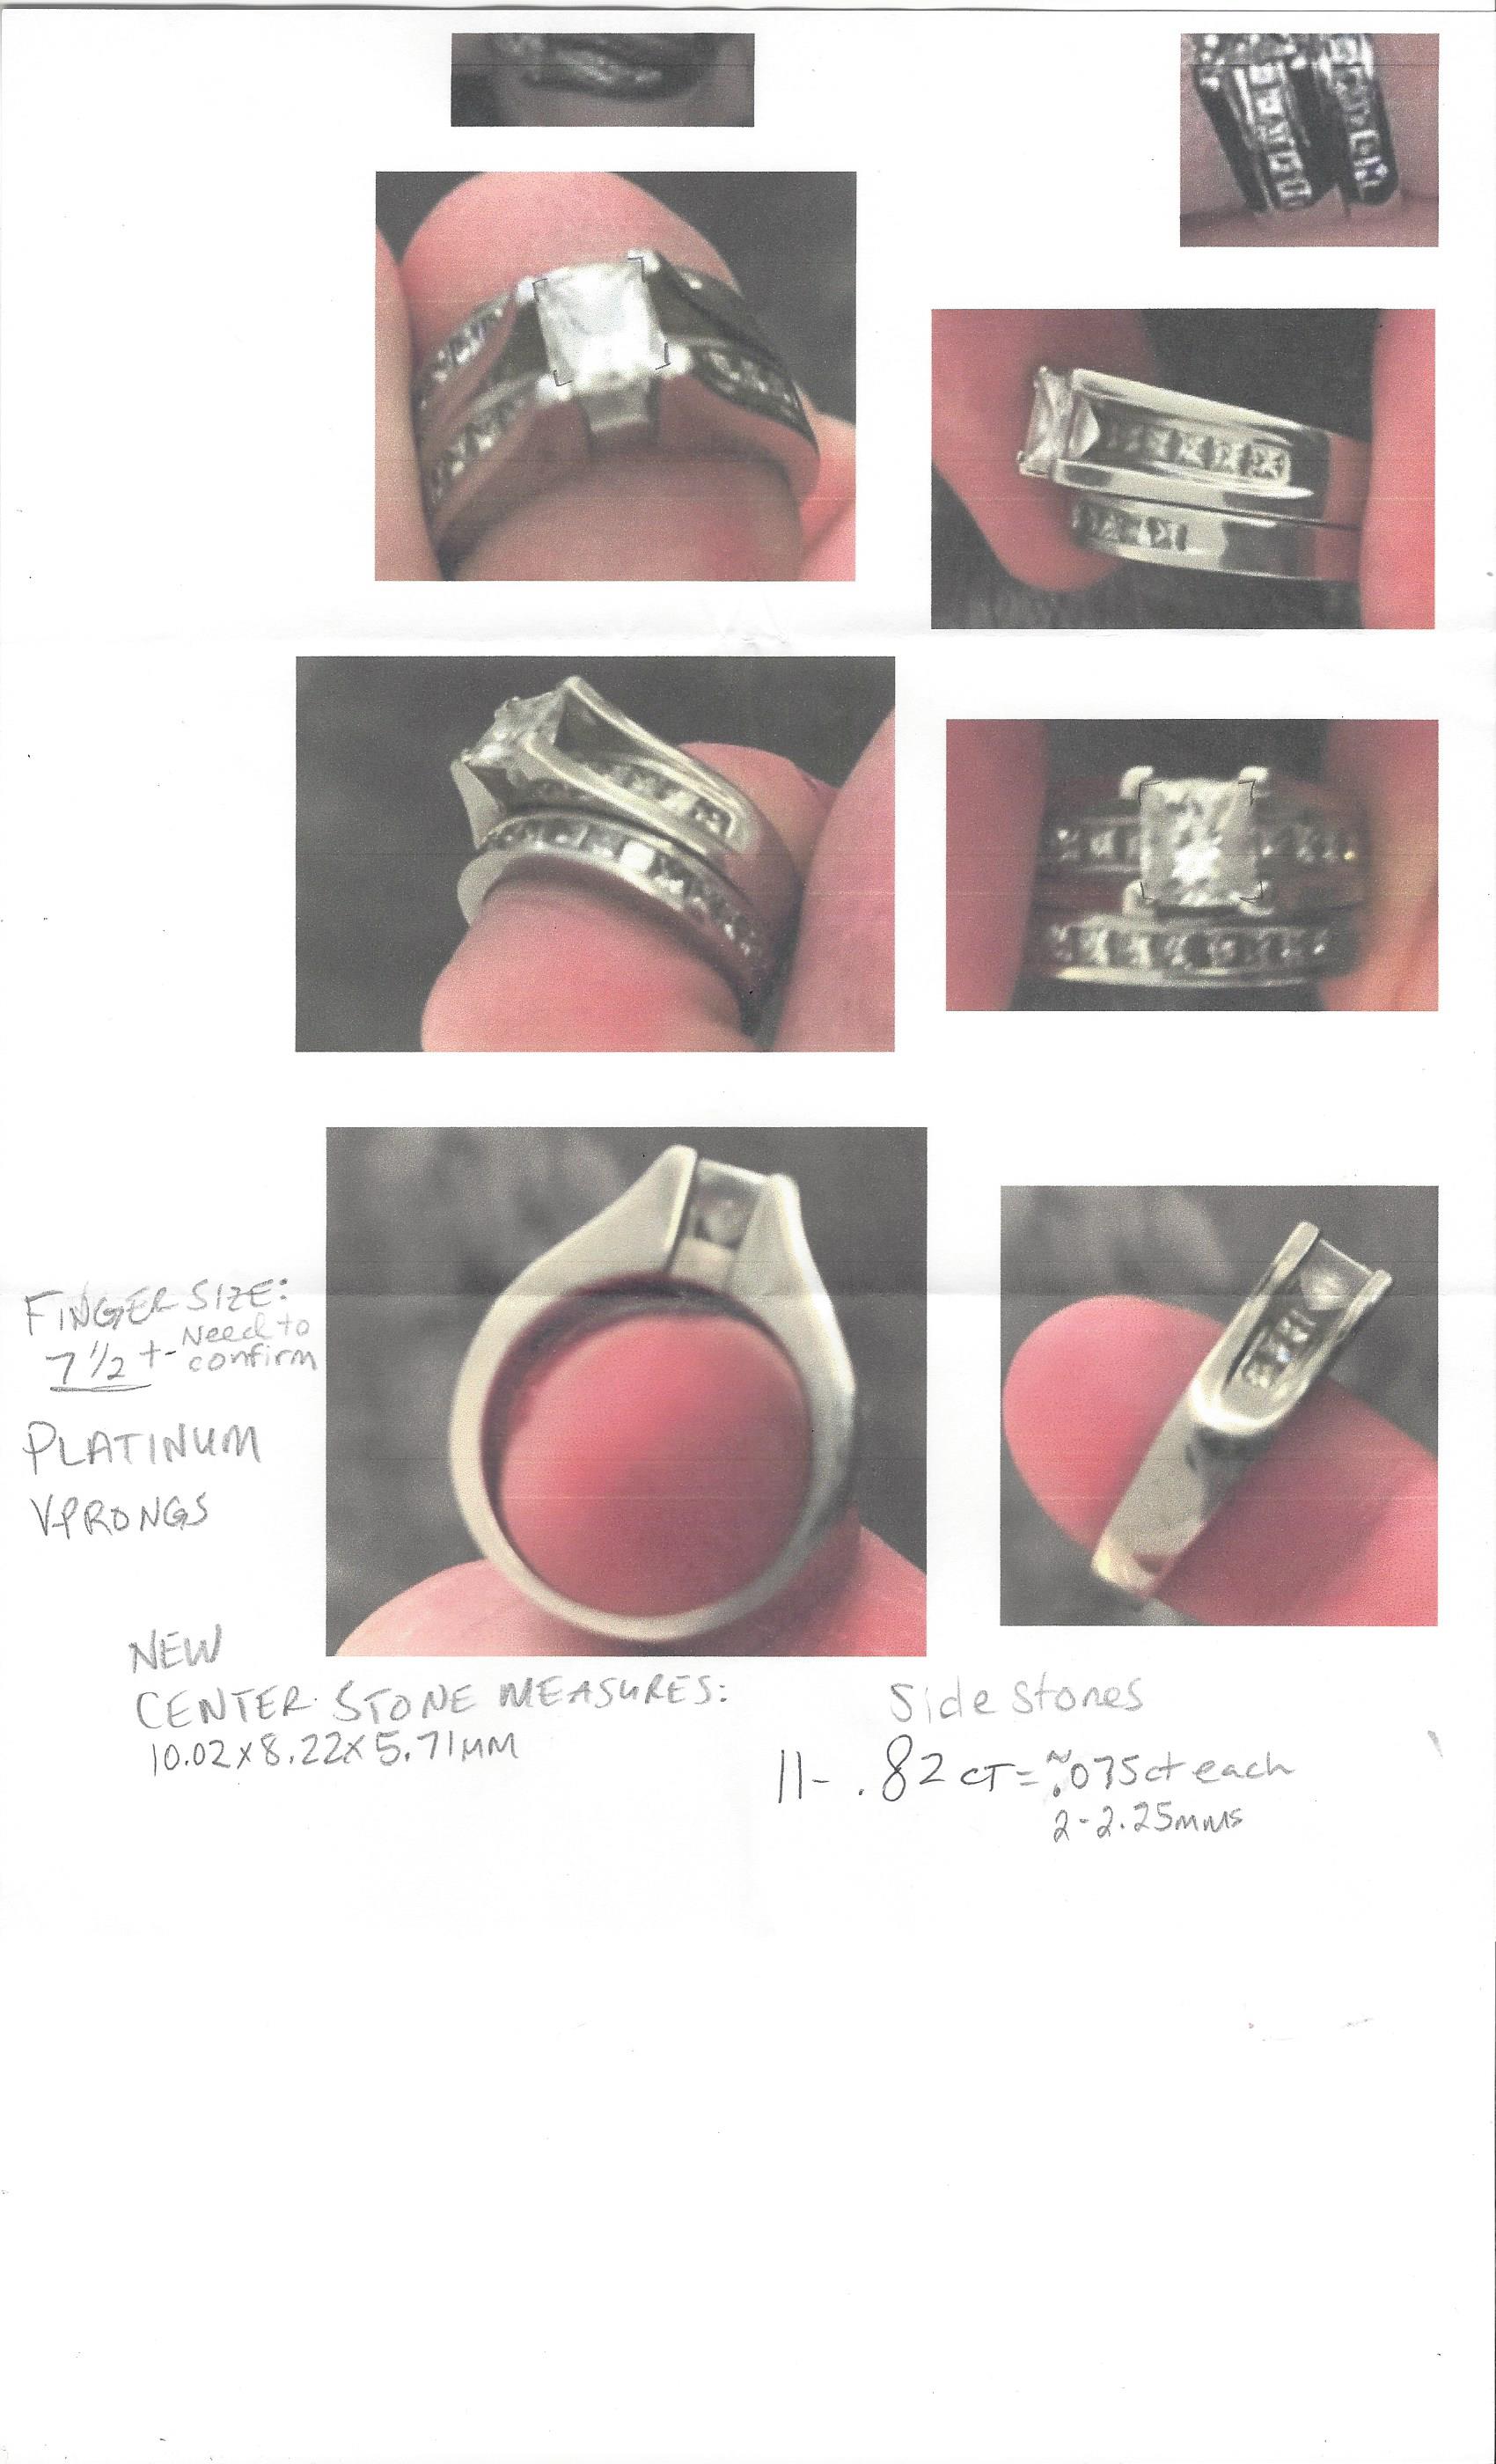 FINGER SIZE:
7 1/2 +- Need to
confirm
PLATINUM
V-PRONGS
NEW
CENTER STONE MEASURES:
10.02 x 8.22 x 5.71MM
Side stones
11- .82 CT = ~.075ct each
2-2.25mms